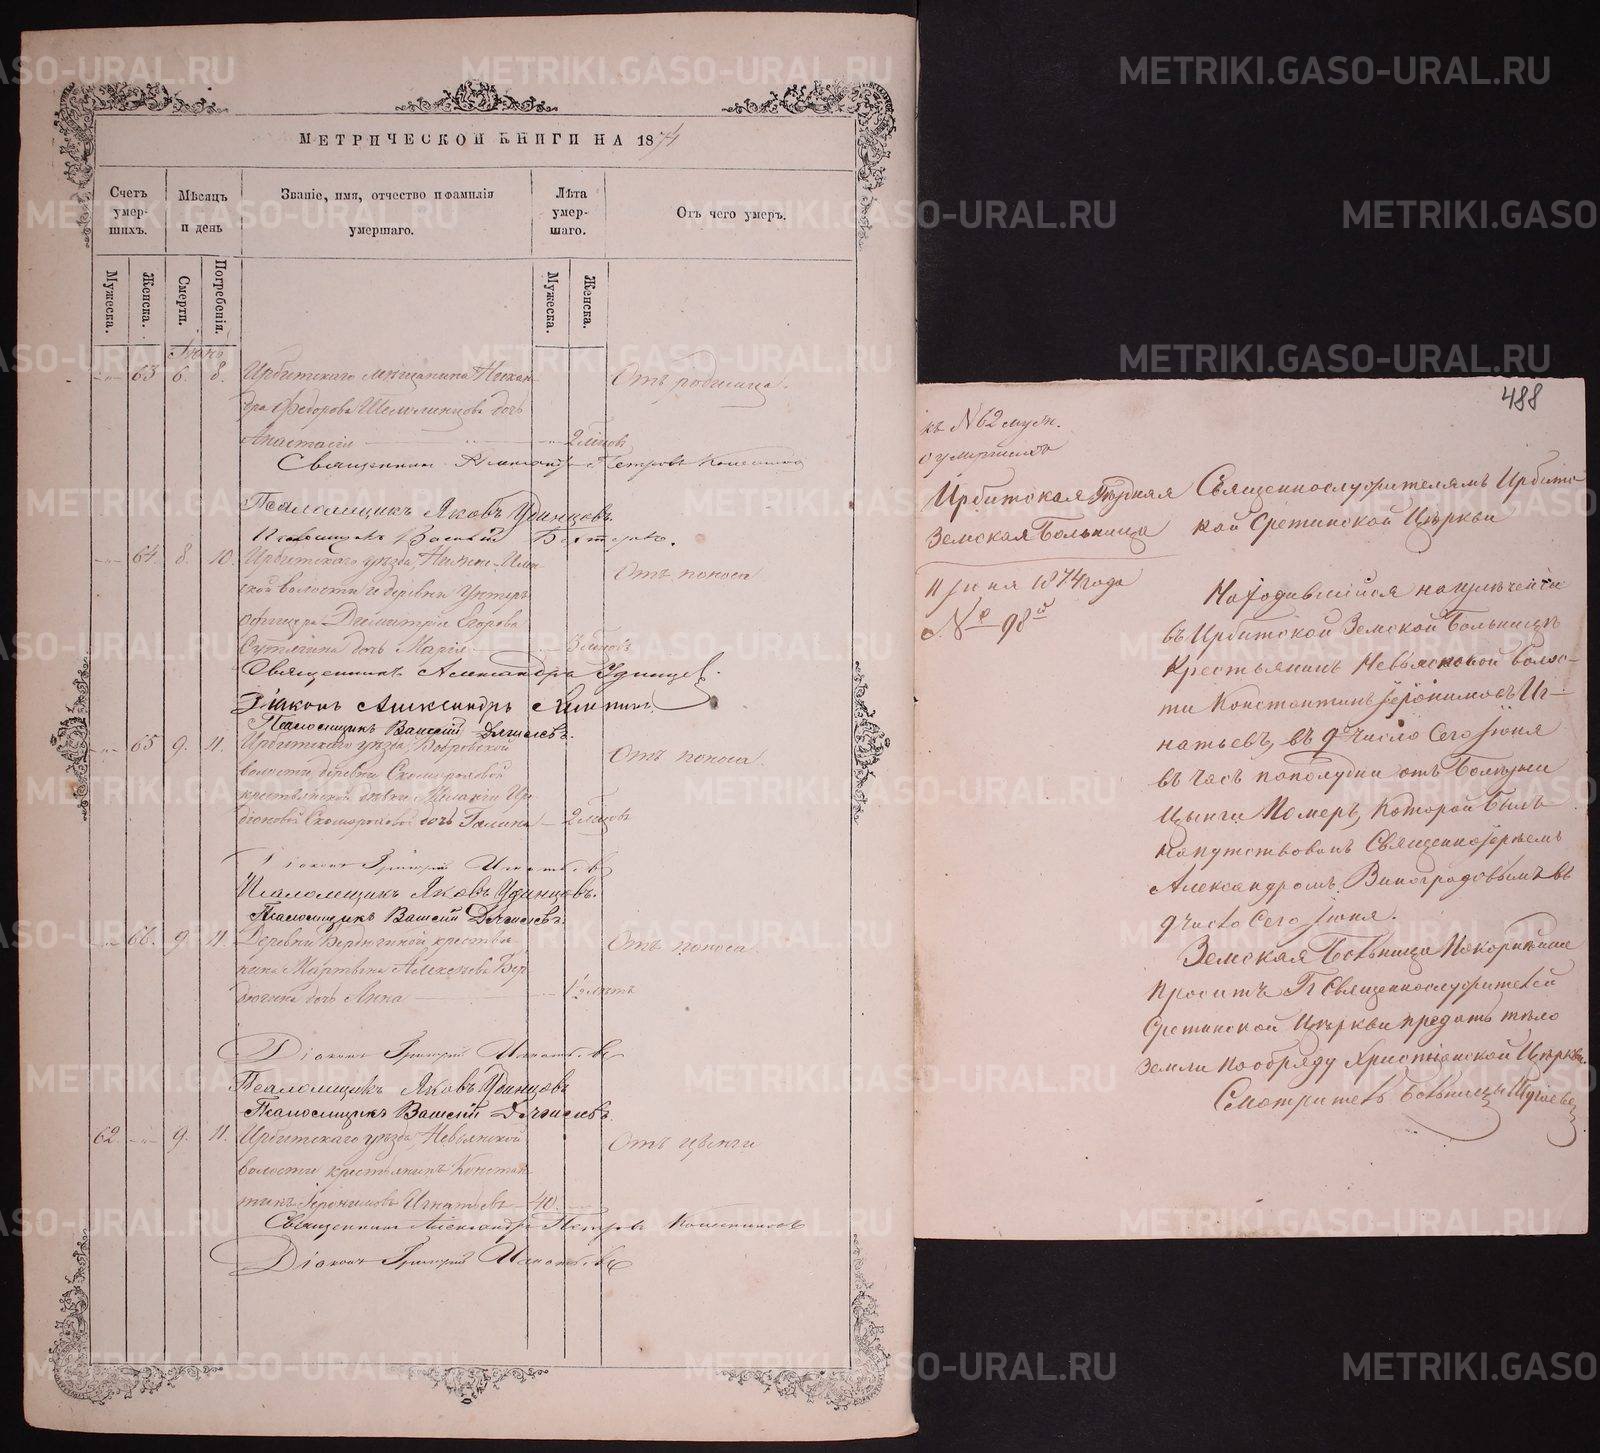 МЕТРИЧЕСКОЙ КНИГИ НА 1874
Счетъ умер-шихъ.
Мѣсяцъ и день
Званіе, имя, отчество и фамилія умершаго.
Лѣта умер-шаго.
Отъ чего умеръ.
Мужеска.
Женска.
Смерти.
Погребенія.
Мужеска.
Женска.
Іюнь
63 6. 8. Ирбитскаго мѣщанина Никан-
дра Федорова дочь
Анастасія 2 лѣтъ
Отъ родимца.
Священникъ Александръ Петровъ
Псаломщикъ Яковъ Удинцовъ.
Псаломщикъ Василій
64. 8. 10. Ирбитскаго уѣзда, Нижне-Илен-
ской волости и деревни Унтеръ
офицера Димитрія Егорова
дочь Марія 3 лѣтъ
Отъ поноса
Священникъ Александръ Удинцев.
Діаконъ Александръ
Псаломщикъ Василій Дягилевъ.
65 9. 11. Ирбитскаго уѣзда, Бобровской
волости деревни Скоморохо́вой
крестьянской дѣвки Меланіи
дочь Галина 2 лѣтъ
Отъ поноса.
Діаконъ Григорій Игнатьевъ
Псаломщикъ Яковъ Удинцовъ.
Псаломщикъ Василій Дягилевъ.
66. 9. 11. Деревни Бердюгиной, крестья-
нина Мартина Алексѣева Бер-
дюгина дочь Анна 1½ лѣтъ
Отъ поноса.
Діаконъ Григорій Игнатьевъ
Псаломщикъ Яковъ Удинцовъ
Псаломщикъ Василій Дягилевъ.
62. 9. 11. Ирбитскаго уѣзда, Невьянской
волости крестьянинъ Констан-
тинъ Іеронимовъ Игнатьевъ 40.
Отъ цынги
Священникъ Александръ Петровъ
Діаконъ Григорій Игнатьевъ
488
къ № 62 муж.
о умершихъ
Ирбитская
Земская Больница
11 Іюня 1874 года
№ 98й
Священнослужителямъ Ирбитс
кой Сретинской Церкви
Находившійся на излѣченіи
въ Ирбитской Земской Больницѣ
Крестьянинъ Невьянской Волос-
ти Константинъ Іеронимовъ Иг-
натьевъ, въ 9е число Сего Іюня
въ часъ пополудни отъ Болѣзни
Цынги Померъ, Которой былъ
Напутствованъ Священноіереемъ
Александромъ Виноградовымъ въ
9 число Сего Іюня.
Земская Больница Покорнѣйше
проситъ Гг Священнослужителей
Сретинской Церкви предать тело
Земли по обряду Христіанской Церкви.
Смотритель Больницы
METRIKI.GASO-URAL.RU